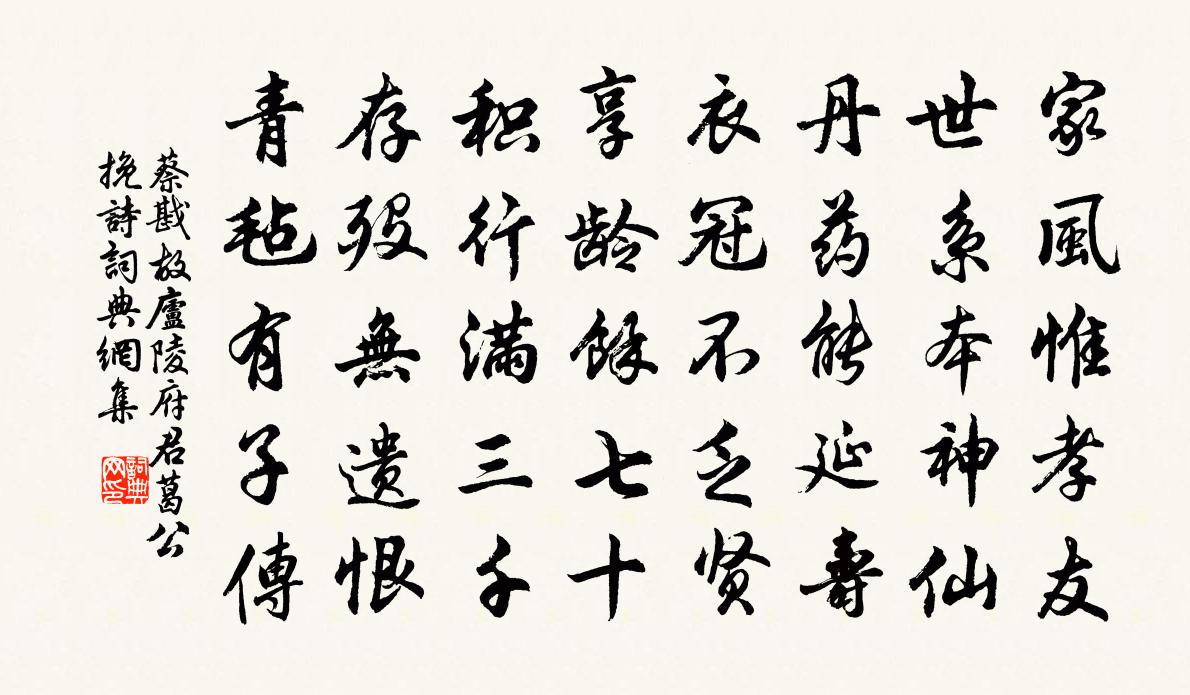 家風惟孝友
世系本神仙
丹药能延壽
衣冠不乏贤
享龄餘七十
积行满三千
存殁無遗恨
青毡有子傳
蔡戡故廬陵府君葛公
挽詩詞典網集
詞典網印